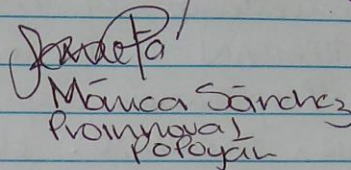 Mónica Sánchez
Proinnova1
Popayán